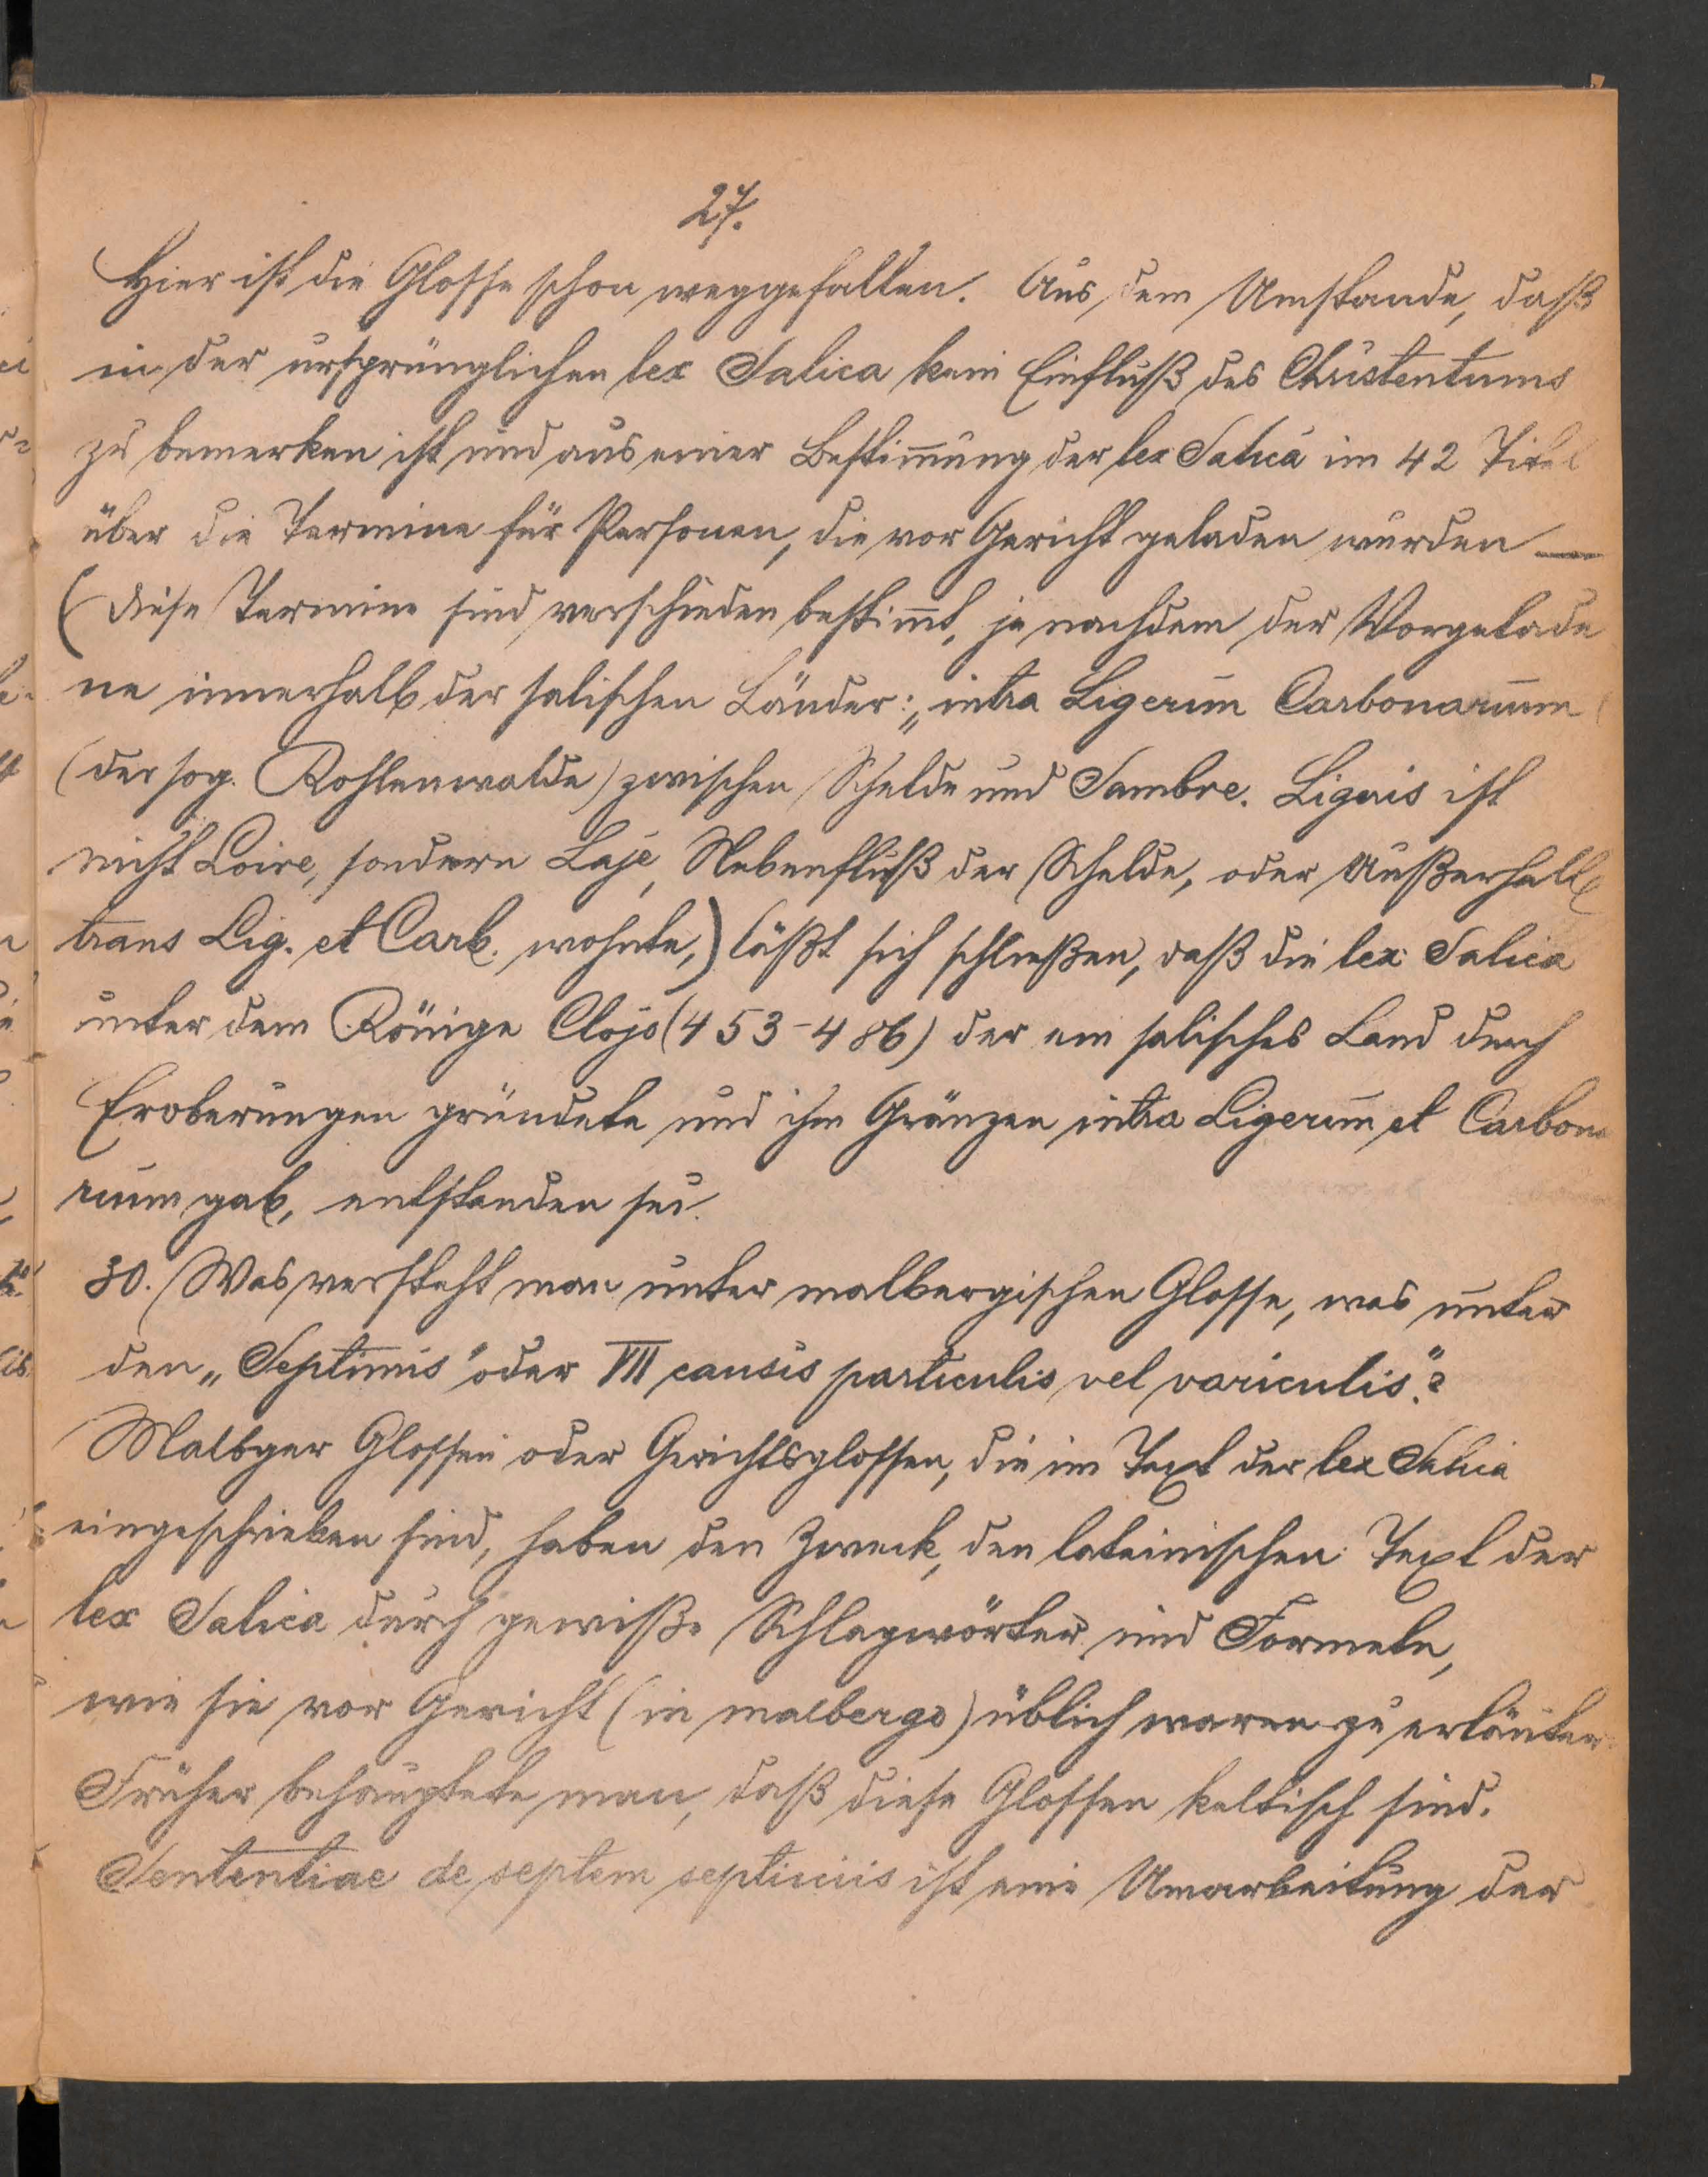 27.
Hier ist die Glosse schon weggefallen. Aus dem Umstande, daß
in der ursprünglichen lex Salica kein Einfluß des Christentums
zu bemerken ist und aus einer Bestim̅ung der lex Salica im 42 Titel
über die Termine für Personen, die vor Gericht geladen wurden —
(diese Termine sind verschieden bestim̅t, je nachdem der Vorgelade
ne innerhalb der salischen Länder: „intra Ligerim Carbonarium
(der sog. Kohlenwalde) zwischen Schelde und Sambre. Ligeris ist
nicht Loire, sondern Laje, Nebenfluß der Schelde, oder Außerhalb
trans Lig. et Carb. wohnte,) läßt sich schließen, daß die lex Salica
unter dem Könige Clojo (453-486) der ein salisches Land durch
Eroberungen gründete und ihm Gränzen intra Ligerim et Carbona
rium gab, entstanden sei.
30. Was versteht man unter malbergischen Glosse, was unter
den „Septimis" oder VII causis particulis vel variculis"?
Malbger Glossen oder Gerichtsglossen, die im Text der lex Salica
eingeschrieben sind, haben den Zweck, den lateinischen Text der
lex Salica durch gewiße Schlagwörter und Formeln,
wie sie vor Gericht (in malbergo) üblich waren zu erläutern
Früher behauptete man, daß diese Glossen keltisch sind.
Sententiae de septem septimis ist eine Umarbeitung der